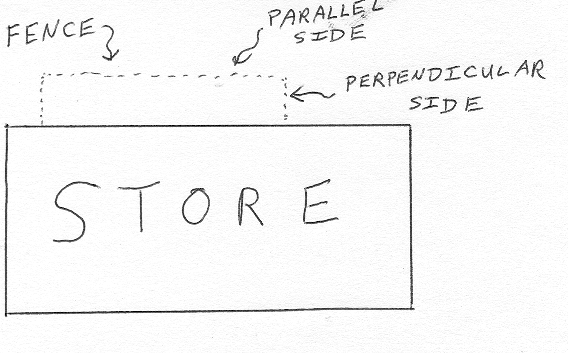 FENCE
PARALLEL
SIDE
PERPENDICULAR
SIDE
STORE